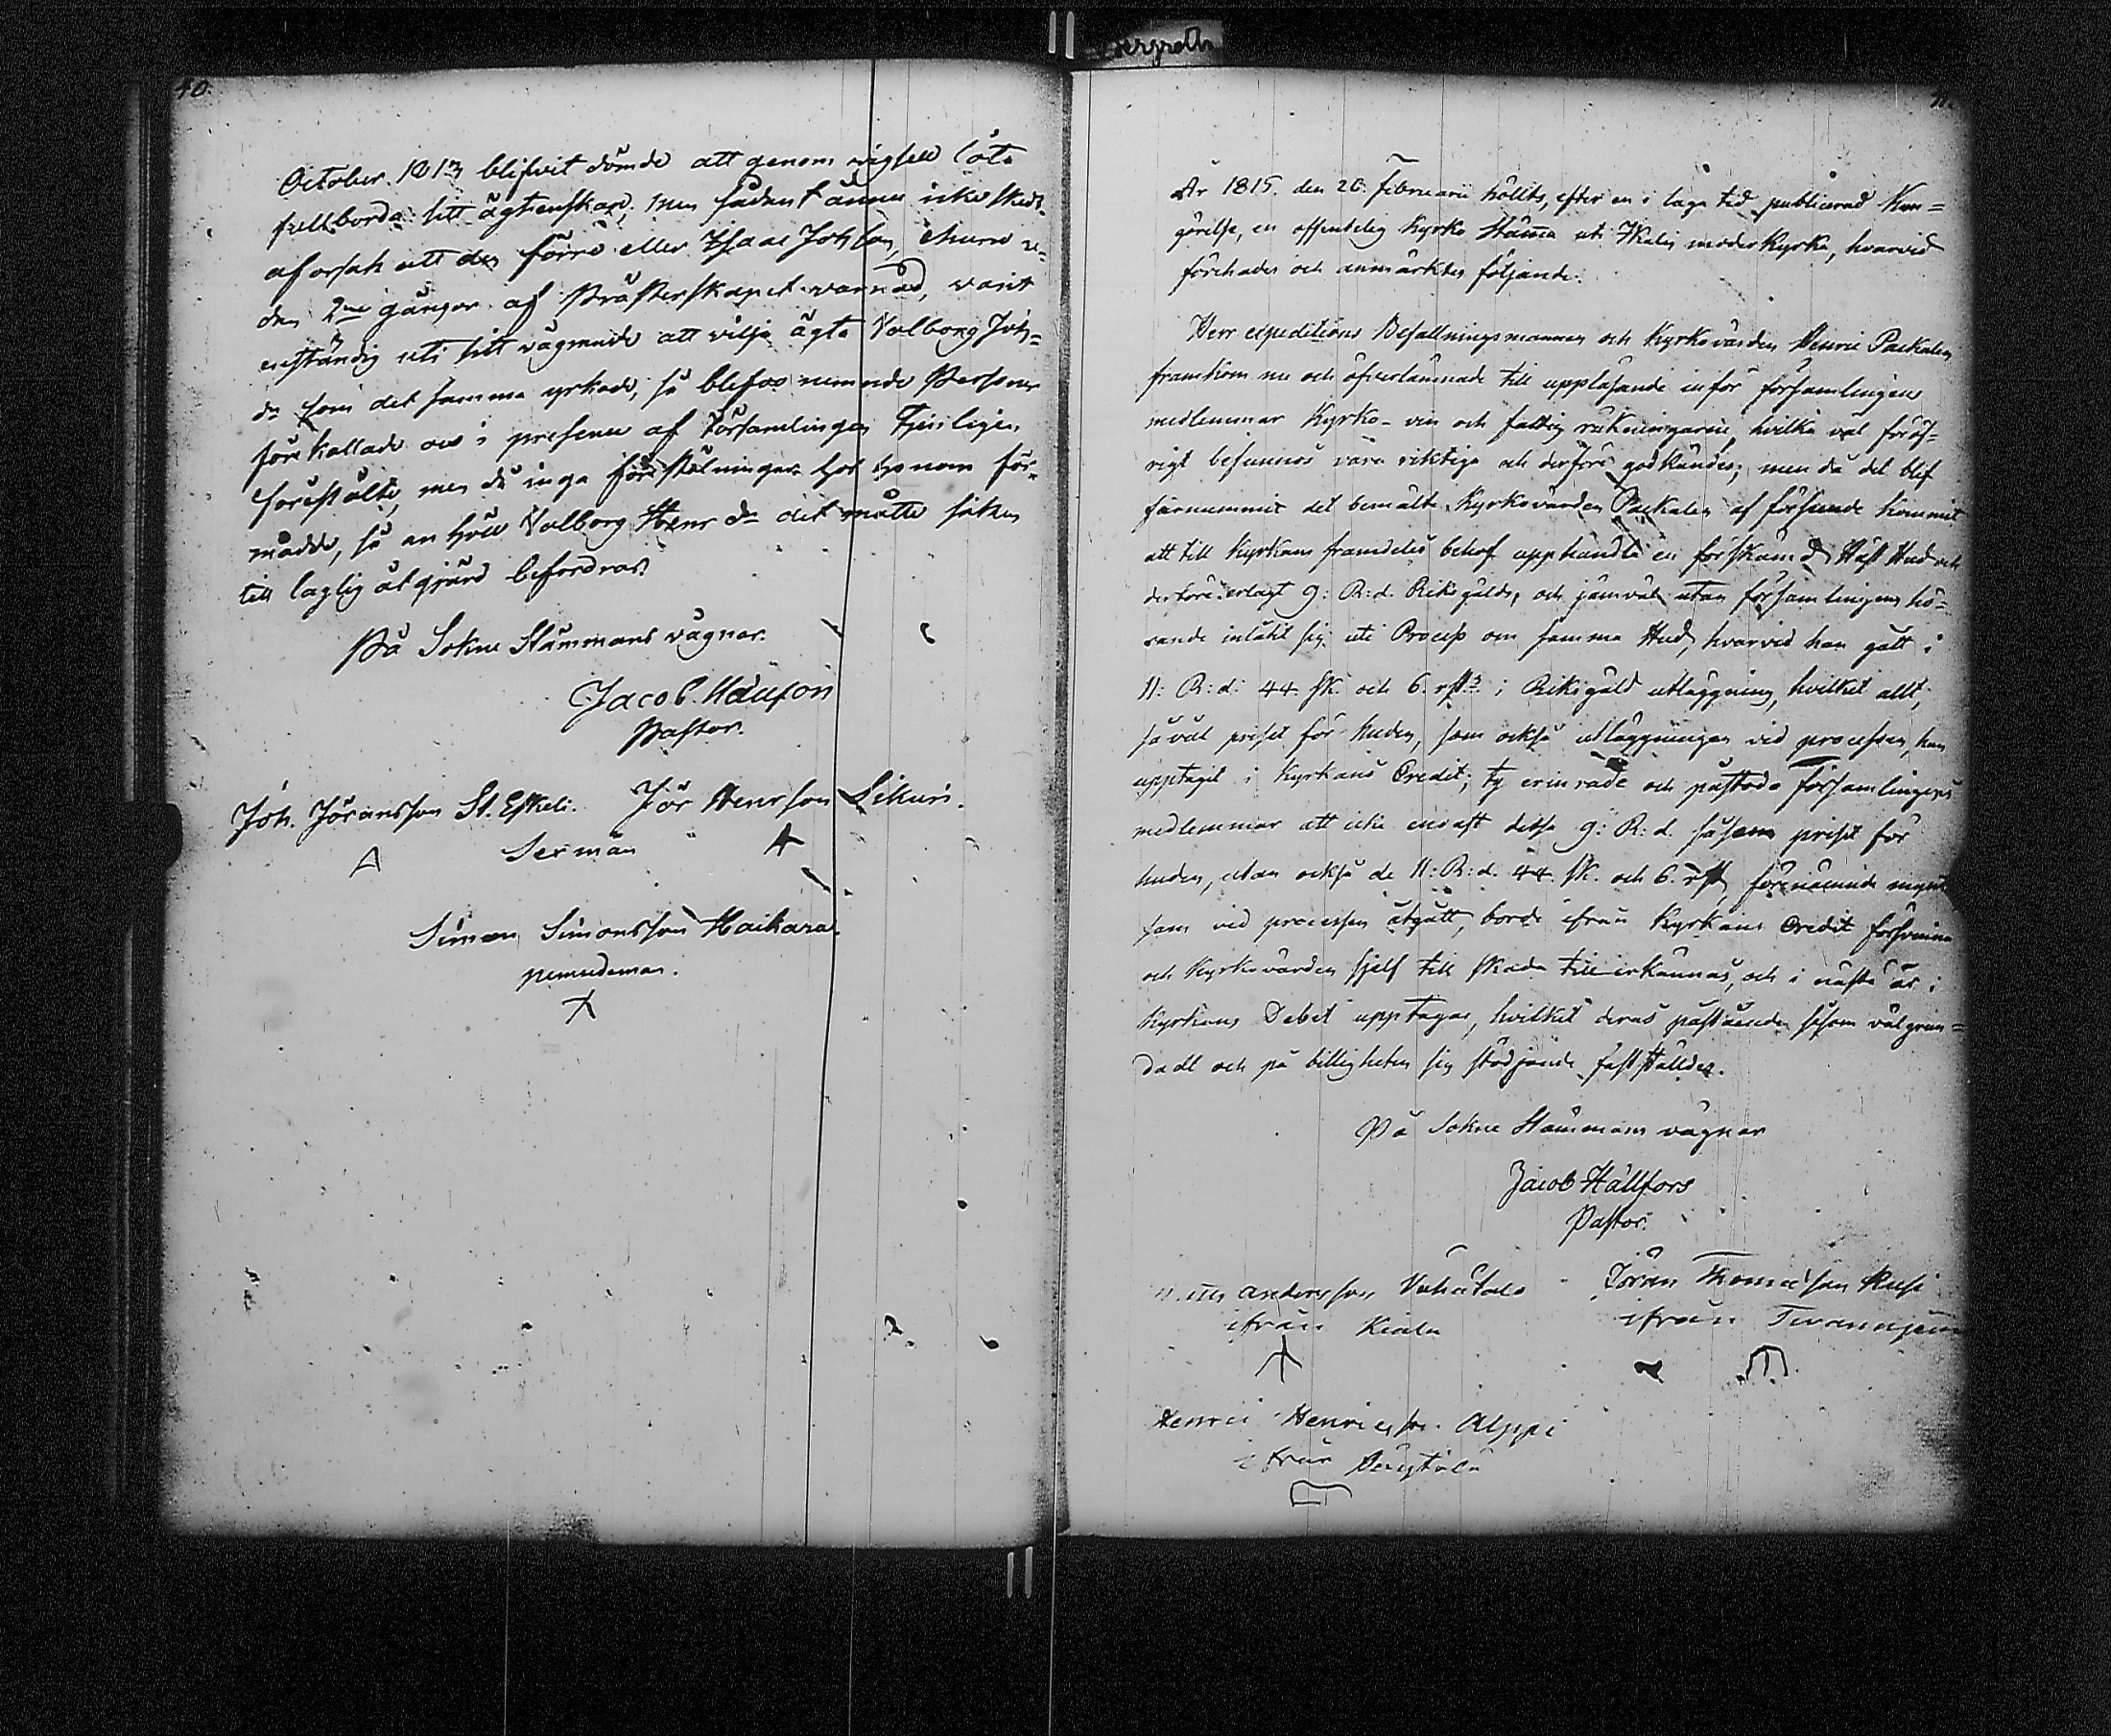 40.
October 1813 blifvit dömde att genom vigsell låta
fullborda sitt ägtenskap; men sådant ännu icke skedt
af orsak att den förre eller Isaac Johsson, churu re-
dan 2ne gånger af Prästerskapet varnad, varit
enständig uti sitt vägrande att vilja ägta Valborg Joh-
dr som det samma yrkade, så blefvo nemnde Personer
före kallade och i presence af Församlingen Tjenligen
föreställte, men då inga föreställningar hos honom för-
mådde, så an höll Valborg Henr dr det måtte saken
till laglig åtgjärd befordras.
På Sokne Stämmans vägnar.
Jacob
Pastor.
Joh. Jöransson St. Eskeli. Jör Henrsson Likuri.
Sexmän
Simon Simonsson Haikara.
nemndeman.
År 1815. den 26. Februarii hölits, efter en i laga tid publicerad Kun=
görelse, en offentelig Kyrko Stämma uti Ikalis moderkyrka, hvarvid
förehades och anmärktes följande:
Herr expeditions Befallningsmannen och Kyrkovärden Henric Packalen
framkom nu och öfverlämnade till uppläsande inför församlingens
medlemmar Kyrko- vin och fattig räkningarne, hvilka väl föröf-
rigt befunnos vara riktige och derföre godkändes; men då det blef
förnummit det bemälte Kyrkovärden Packalen af försеende kommit
att till Kyrkans framdeles behof upphandla en förskämd Häst Hud och
derföre erlagt 9: R:d. Riksgälds, och jämväl utan församlingens hö=
rande inlåtit sig uti Process om samma Hud, hvarvid han gått i
11: R:d: 44. sk. och 6. rst. i Riksgäld utläggning, hvilket allt,
såväl priset för huden, som också utläggningen vid processen, han
upptagit i Kyrkans Credit; ty erinrade och påstodo församlingens
medlemmar att icke endast dessa 9: R:d. såsom priset för
huden, utan också de 11: R:d. 44. sk. och 6. rst, förenämnde mynt
som vid processen åtgått, borde ifrån Kyrkans Credit försvinna
och Kyrkovärden sjelf till skada tillerkännas, och i nästa år i
Kyrkans Debet upptagas, hvilket deras påstående såsom välgrun=
dadt och på billigheten sig stödjande fastställdes.
På Sokne Stämmans vägnar
Jacob Hällfors
Pastor.
Andersson Vähätalo Jöran Thomasson Rusi
ifrån Kiala ifrån
Henric Henricsson Alppi
ifrån